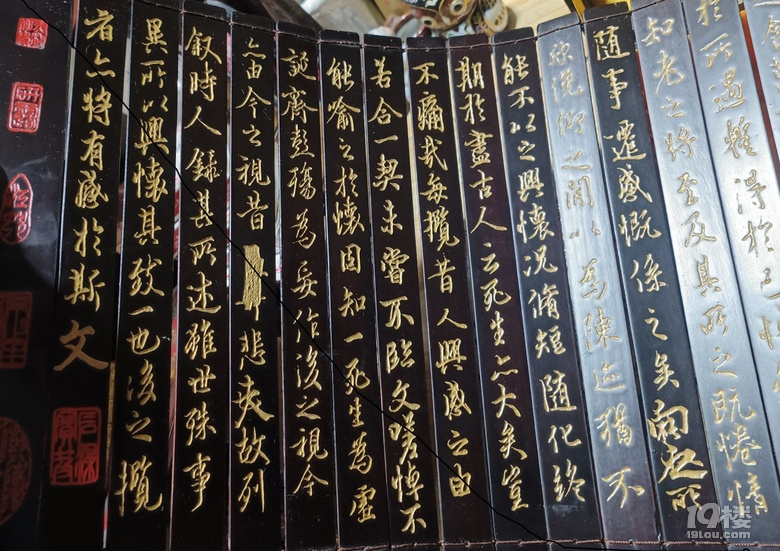 於所遇暫得於己快
知老之將至及其所之既惓情
隨事遷感慨係之矣向之所
欣俛仰之間以為陳迹猶不
能不以之興懷況脩短隨化終
期於盡古人云死生亦大矣豈
不痛哉每攬昔人興感之由
若合一契未嘗不臨文嗟悼不
能喻之於懷固知一死生為虛
誕齊彭殤為妄作後之視今
亦由今之視昔悲夫故列
敘時人錄其所述雖世殊事
異所以興懷其致一也後之攬
者亦將有感於斯文
19楼
19lou.com